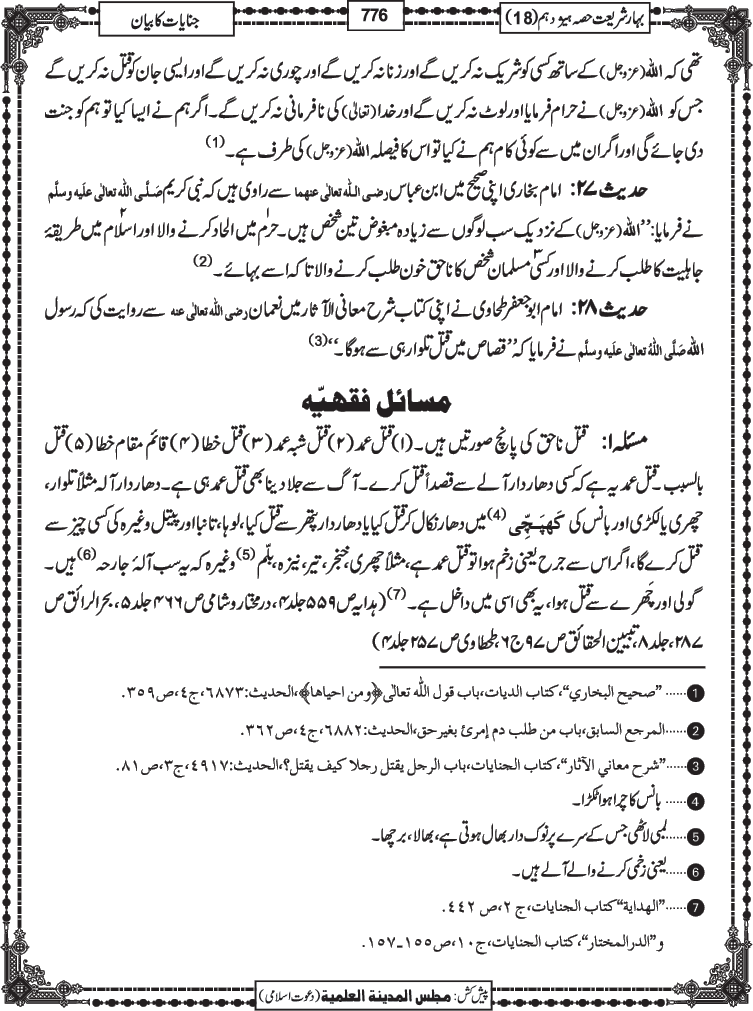 بہار شریعت حصہ ہیژدہم (18)
776
جنایات کا بیان
تھی کہ اللہ (عزوجل) کے ساتھ کسی کو شریک نہ کریں گے اور زنا نہ کریں گے اور چوری نہ کریں گے اور ایسی جان کو قتل نہ کریں گے
جس کو اللہ (عزوجل) نے حرام فرمایا اور لوٹ نہ کریں گے اور خدا (تعالیٰ) کی نافرمانی نہ کریں گے۔ اگر ہم نے ایسا کیا تو ہم کو جنت
دی جائے گی اور اگر ان میں سے کوئی کام ہم نے کیا تو اس کا فیصلہ اللہ (عزوجل) کی طرف ہے۔ (1)
حدیث ۲۷: امام بخاری اپنی صحیح میں ابن عباس رضی اللہ تعالی عنھما سے راوی ہیں کہ نبی کریم صَلَّی اللہ تعالی علیہ وسلَّم
نے فرمایا: ’’اللہ (عزوجل) کے نزدیک سب لوگوں سے زیادہ مبغوض تین شخص ہیں۔ حرم میں الحاد کرنے والا اور اسلام میں طریقۂ
جاہلیت کا طلب کرنے والا اور کسی مسلمان شخص کا ناحق خون طلب کرنے والا تاکہ اسے بہائے۔ (2)
حدیث ۲۸: امام ابو جعفر طحاوی نے اپنی کتاب شرح معانی الآثار میں نعمان رضی اللہ تعالی عنہ سے روایت کی کہ رسول
اللہ صَلَّی اللہُ تعالی علیہ وسلَّم نے فرمایا کہ ’’قصاص میں قتل تلوار ہی سے ہوگا۔‘‘ (3)
مسائل فقهيّه
مسئلہ ۱: قتل ناحق کی پانچ صورتیں ہیں۔ (۱) قتل عمد (۲) قتل شبہ عمد (۳) قتل خطا (۴) قائم مقام خطا (۵) قتل
بالسبب۔ قتل عمد یہ ہے کہ کسی دھاردار آلے سے قصداً قتل کرے۔ آگ سے جلا دینا بھی قتل عمد ہی ہے۔ دھاردار آلہ مثلاً تلوار،
چھری یا لکڑی اور بانس کی کھپچّی (4) میں دھار نکال کر قتل کیا یا دھاردار پتھر سے قتل کیا، لوہا، تانبا اور پیتل وغیرہ کی کسی چیز سے
قتل کرے گا، اگر اس سے جرح یعنی زخم ہوا تو قتل عمد ہے، مثلاً چھری، خنجر، تیر، نیزہ، بلّم (5) وغیرہ کہ یہ سب آلۂ جارحہ (6) ہیں۔
گولی اور چَھرے سے قتل ہوا، یہ بھی اسی میں داخل ہے۔ (7) (ہدایہ ص ۵۵۹ جلد ۴، درمختار و شامی ص ۴۶۶ جلد ۵، بحرالرائق ص
۲۸۷، جلد ۸، تبیین الحقائق ص ۹۷ ج ۶، طحطاوی ص ۲۵۷ جلد ۴)
1 ......"صحيح البخاري"، كتاب الديات، باب قول الله تعالى ﴿ومن احياها﴾، الحديث: ٦٨٧٣، ج٤، ص٣٥٩.
2 ......المرجع السابق، باب من طلب دم إمرئ بغير حق، الحديث: ٦٨٨٢، ج٤، ص٣٦٢.
3 ......"شرح معاني الآثار"، كتاب الجنايات، باب الرجل يقتل رجلا كيف يقتل؟، الحديث: ٤٩١٧، ج٣، ص٨١.
4 ...... بانس کا چرا ہوا ٹکڑا۔
5 ......لمبی لاٹھی جس کے سرے پر نوک دار بھال ہوتی ہے، بھالا، برچھا۔
6 ......یعنی زخمی کرنے والے آلے ہیں۔
7 ......"الهداية" كتاب الجنايات، ج ٢، ص ٤٤٢.
و"الدرالمختار"، كتاب الجنايات، ج١٠، ص١٥٥-١٥٧.
پیش کش: مجلس المدينة العلمية (دعوت اسلامی)